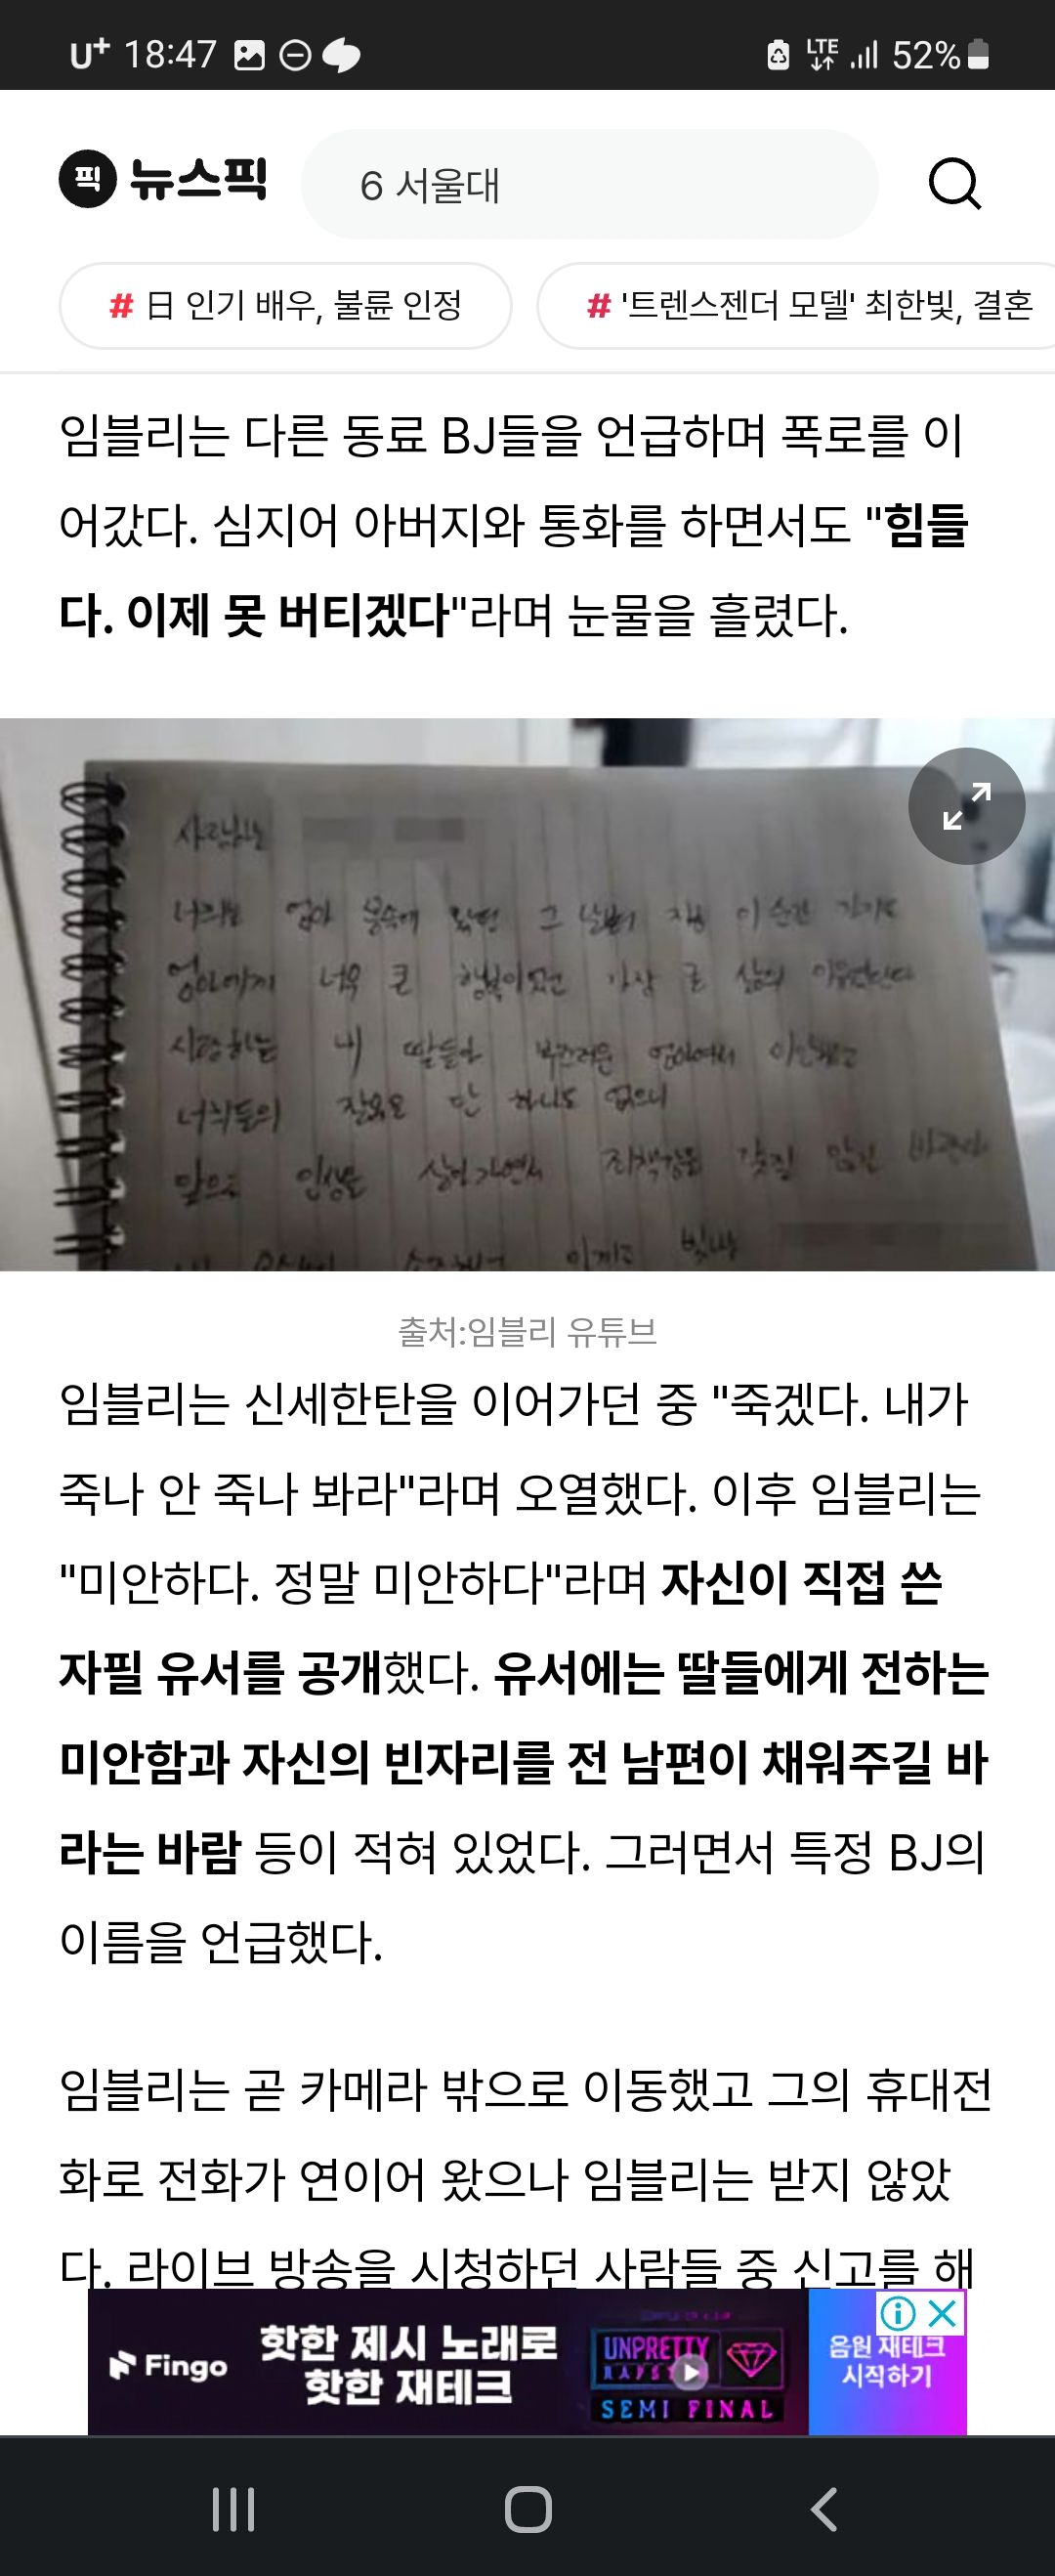 U+ 18:47 LTE 52%
픽 뉴스픽 6 서울대
# 日 인기 배우, 불륜 인정 # '트렌스젠더 모델' 최한빛, 결혼
임블리는 다른 동료 BJ들을 언급하며 폭로를 이
어갔다. 심지어 아버지와 통화를 하면서도 "힘들
다. 이제 못 버티겠다"라며 눈물을 흘렸다.
사랑하는
너희는 엄마 뱃속에 왔던 그 날부터 지금 이 순간 까지도
엄마에게 너무 큰 행복이였고 가장 큰 삶의 이유였단다
사랑하는 내 딸들아 부끄러운 엄마여서 미안했고
너희들의 잘못은 단 하나도 없으니
앞으로 인생을 살아가면서 죄책감을 갖질 않길 바란다
출처:임블리 유튜브
임블리는 신세한탄을 이어가던 중 "죽겠다. 내가
죽나 안 죽나 봐라"라며 오열했다. 이후 임블리는
"미안하다. 정말 미안하다"라며 자신이 직접 쓴
자필 유서를 공개했다. 유서에는 딸들에게 전하는
미안함과 자신의 빈자리를 전 남편이 채워주길 바
라는 바람 등이 적혀 있었다. 그러면서 특정 BJ의
이름을 언급했다.
임블리는 곧 카메라 밖으로 이동했고 그의 휴대전
화로 전화가 연이어 왔으나 임블리는 받지 않았
다. 라이브 방송을 시청하던 사람들 중 신고를 해
Fingo 핫한 제시 노래로 UNPRETTY 음원 재테크
핫한 재테크 SEMI FINAL 시작하기